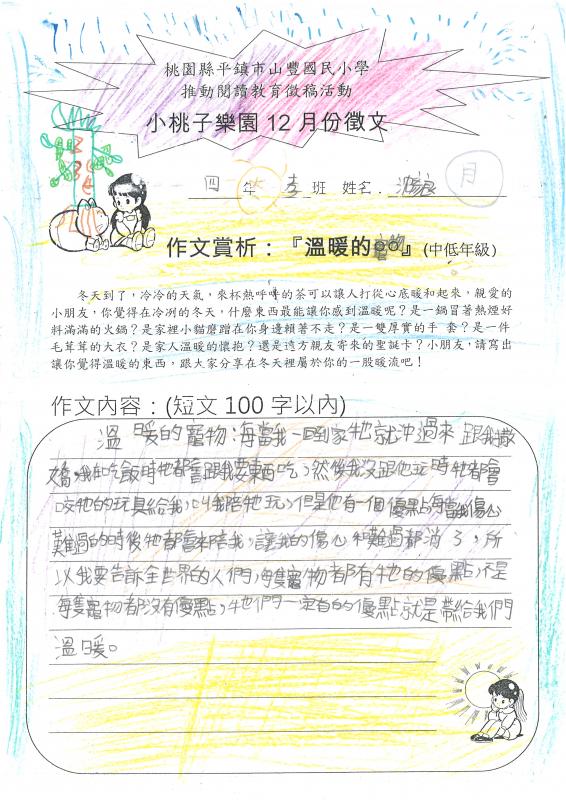 桃園縣平鎮市山豐國民小學
推動閱讀教育徵稿活動
小桃子樂園 12 月份徵文
四 年 李 班 姓名：
月
作文賞析：『溫暖的寵物』(中低年級)
冬天到了，冷冷的天氣，來杯熱呼呼的茶可以讓人打從心底暖和起來，親愛的
小朋友，你覺得在冷冽的冬天，什麼東西最能讓你感到溫暖呢？是一鍋冒著熱煙好
料滿滿的火鍋？是家裡小貓磨蹭在你身邊賴著不走？是一雙厚實的手 套？是一件
毛茸茸的大衣？是家人溫暖的懷抱？還是遠方親友寄來的聖誕卡？小朋友，請寫出
讓你覺得溫暖的東西，跟大家分享在冬天裡屬於你的一股暖流吧！
作文內容：(短文 100 字以內)
溫暖的寵物：每當我一回到家牠就沖過來跟我撒
嬌，我在吃飯時牠都會跟我要東西吃，然後我沒跟他玩時牠都會
咬牠的玩具給我，叫我陪牠玩，但是他有一個優點每當我傷心
難過的時後牠都會來陪我，讓我的傷心和難過都消了，所
以我要告訴全世界的人們，每隻寵物都有牠的優點，不是
每隻寵物都沒有優點，牠們一定有的優點就是帶給我們
溫暖。